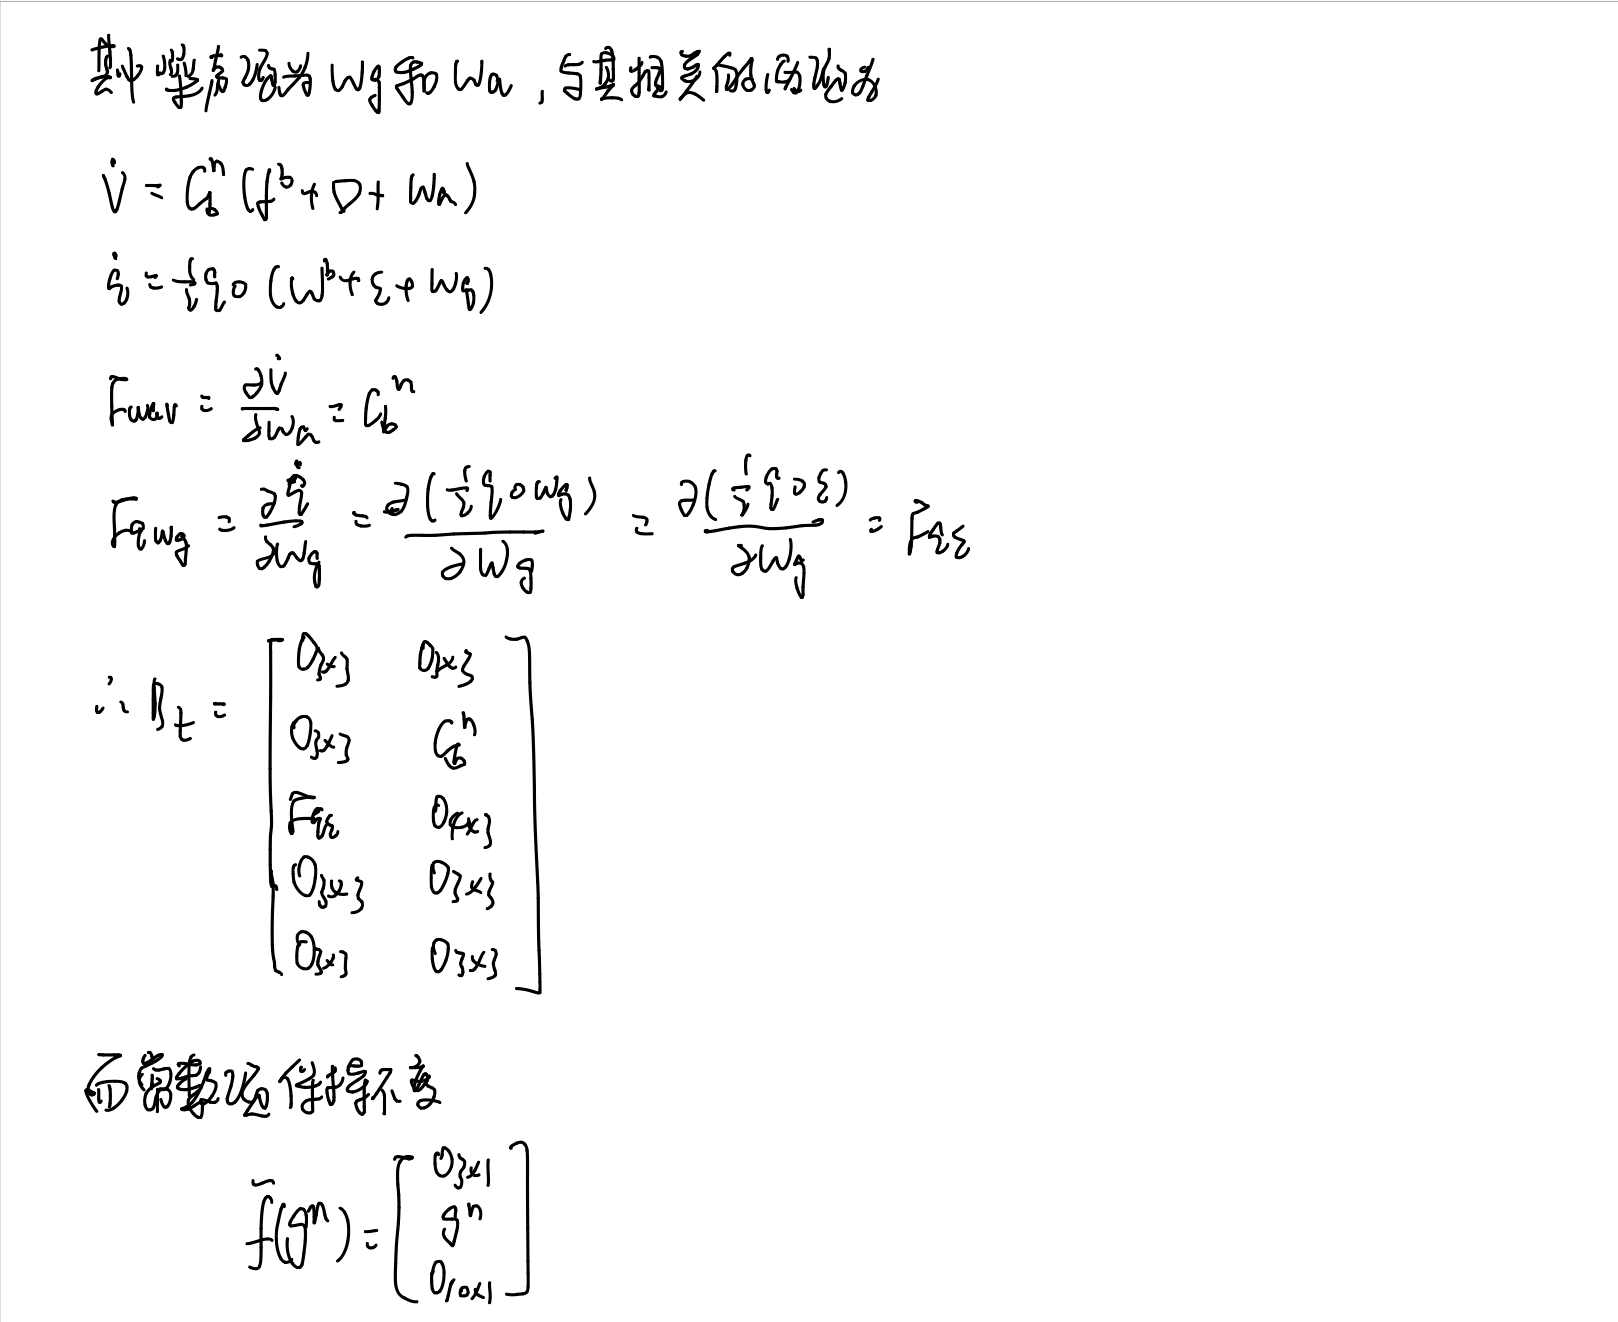 其中噪声项为 Wg和 Wa , 与其相关的 项为
V̇ = C_b^n (f^b + ∇ + Wa)
q̇ = ½ q∘ (W^b + ε + Wg)
F_wav = ∂V̇/∂Wa = C_b^n
F_qwg = ∂q̇/∂Wg = ∂(½ q∘Wg)/∂Wg = ∂(½ q∘ε)/∂Wg = F_qε
∴ B_t = [
O3×3 O3×3
O3×3 C_b^n
F_qε O4×3
O3×3 O3×3
O3×3 O3×3
]
而常数项保持不变
f̃(g^n) = [
O3×1
g^n
O10×1
]